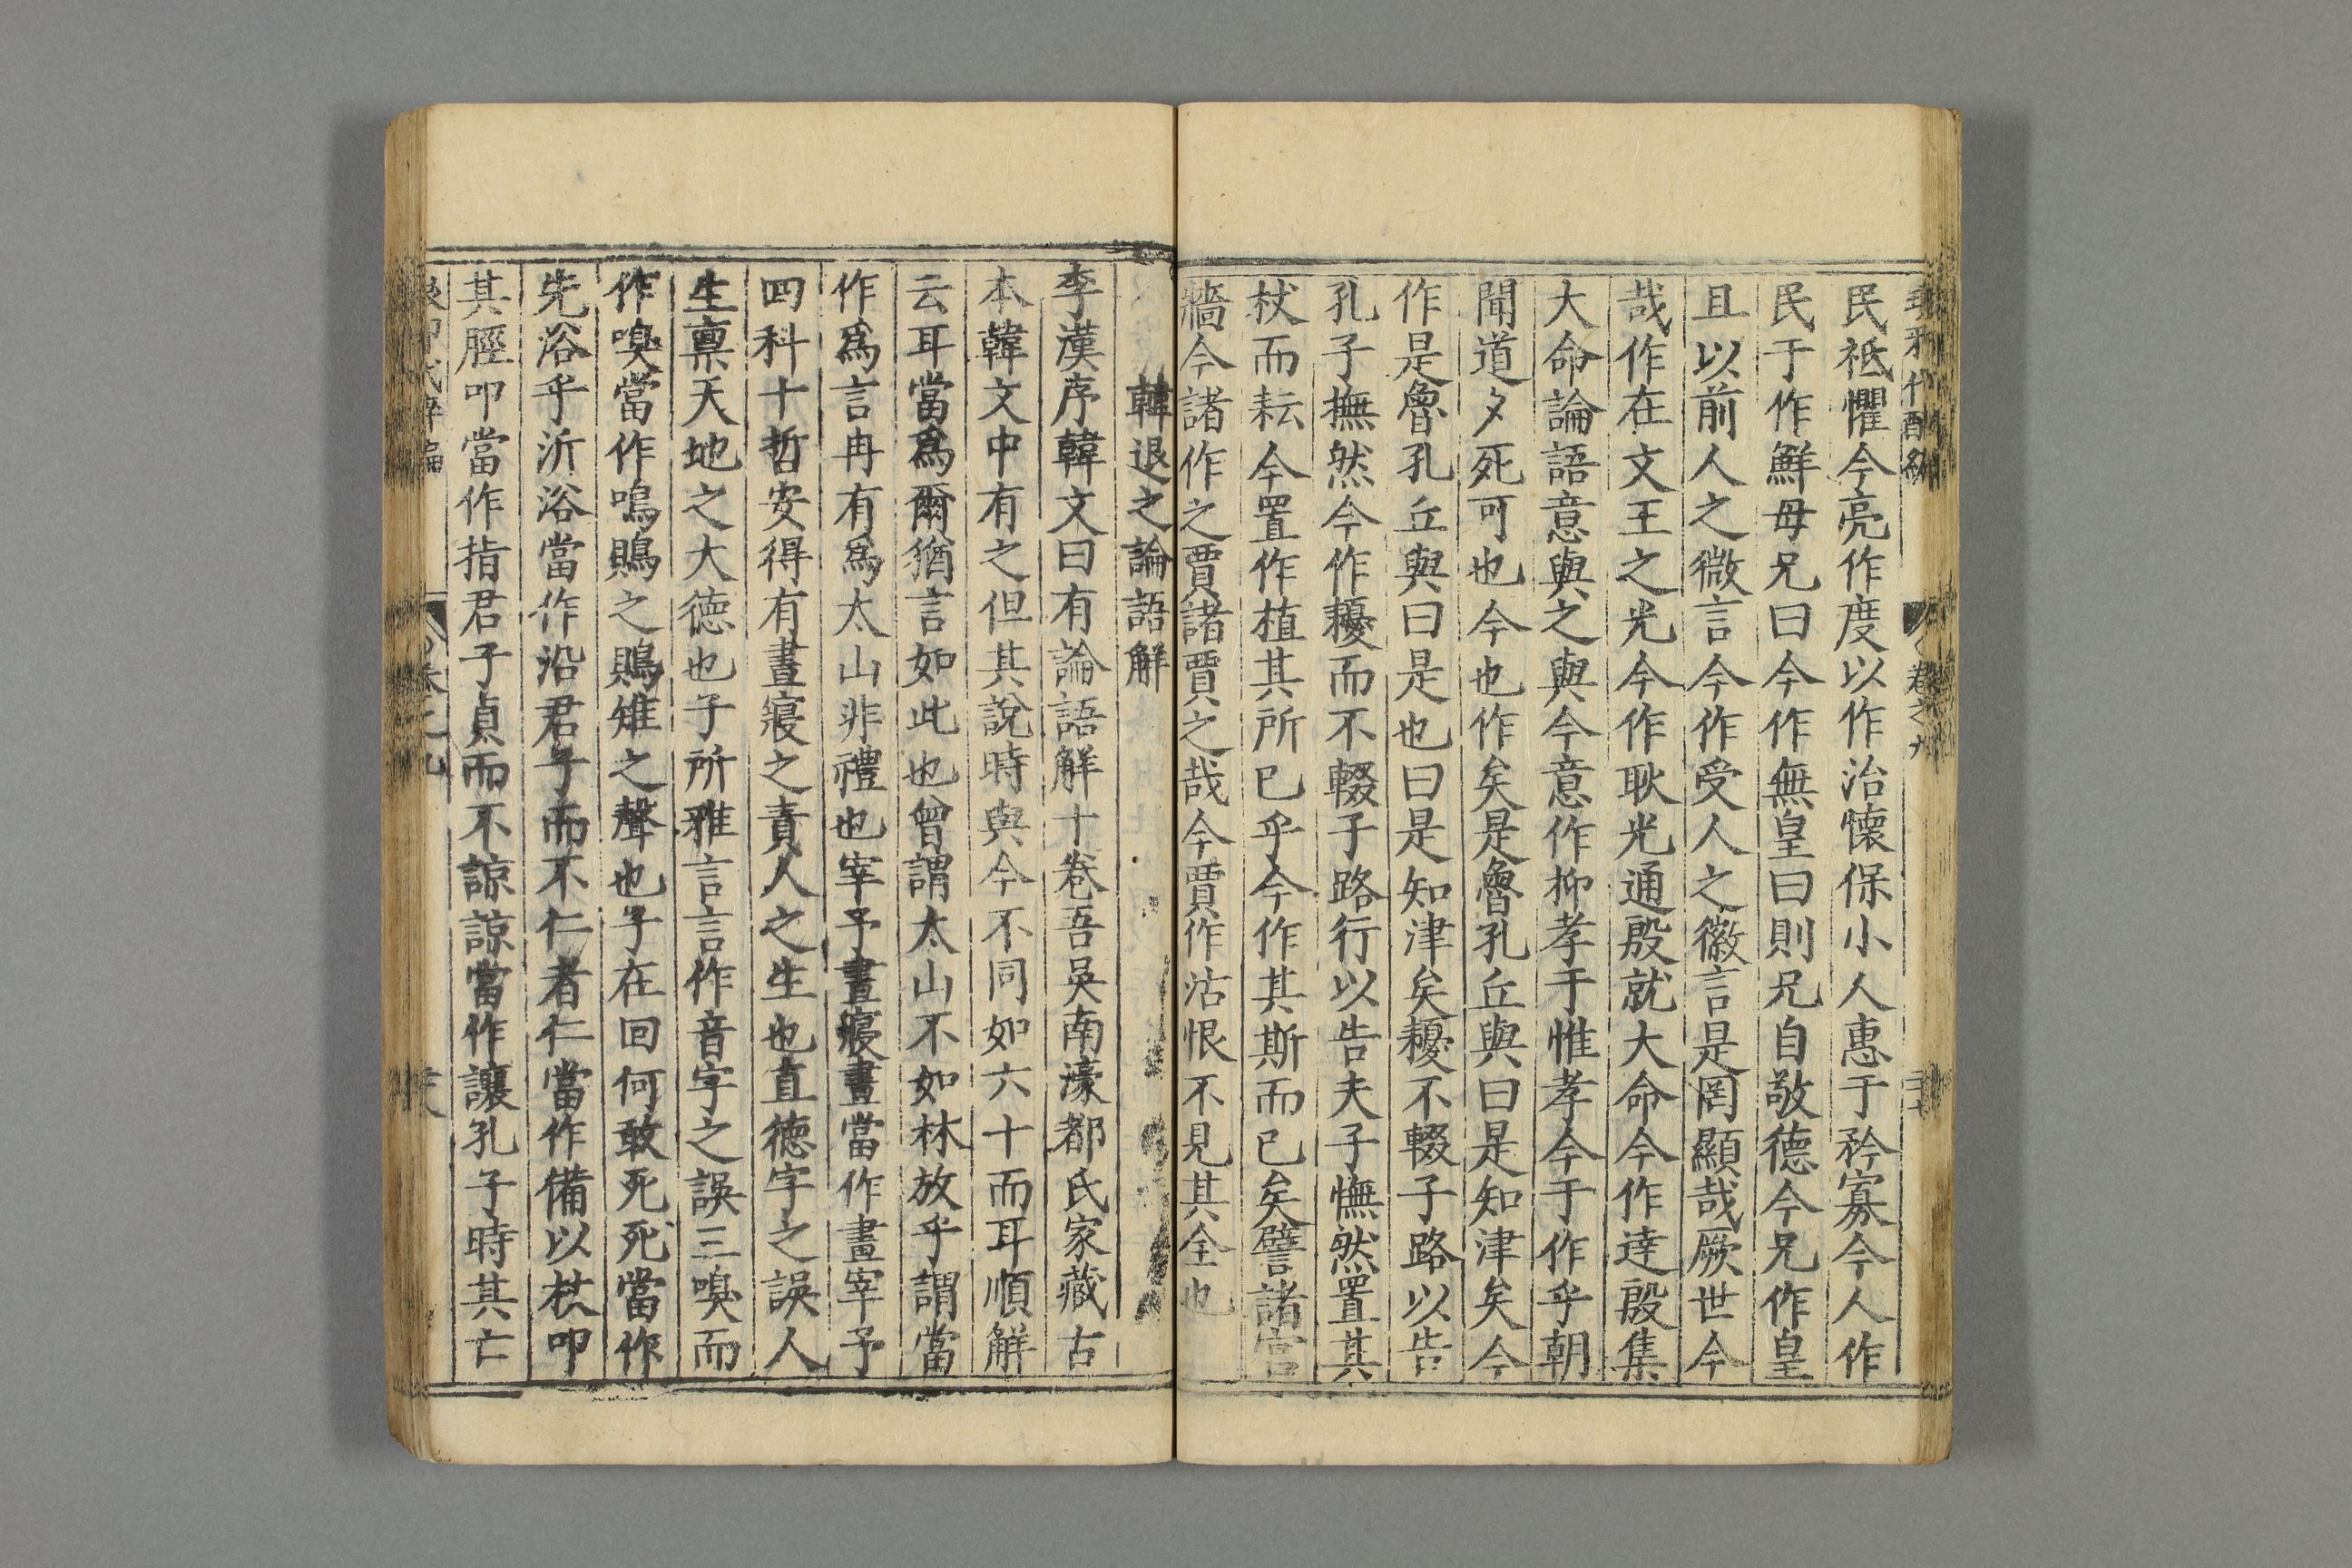 民祗懼今亮作度以作治懷保小人惠于矜寡今人作
民于作鮮毋兄曰今作無皇曰則兄自敬德今兄作皇
且以前人之微言今作受人之徽言是罔顯哉厥世今
哉作在文王之光今作耿光通殷就大命今作達殷集
大命論語意與之與今意作抑孝于惟孝今于作乎朝
聞道夕死可也今也作矣是魯孔丘與曰是知津矣今
作是魯孔丘與曰是也曰是知津矣耰不輟子路以告
孔子撫然今作耰而不輟子路行以告夫子憮然置其
杖而耘今置作植其所已乎今作其斯而已矣譬諸宮
牆今諸作之賈諸賈之哉今賈作沽恨不見其全也
韓退之論語解
李漢序韓文曰有論語解十卷吾吳南濠都氏家藏古
本韓文中有之但其說時與今不同如六十而耳順解
云耳當爲爾猶言如此也曾謂太山不如林放乎謂當
作爲言冉有爲太山非禮也宰予晝寢晝當作畫宰予
四科十哲安得有晝寢之責人之生也直德字之誤人
生禀天地之大德也子所雅言言作音字之誤三嗅而
作嗅當作嗚鵙之鵙雉之聲也子在回何敢死死當作
先浴乎沂浴當作沿君子而不仁者仁當作備以杖叩
其脛叩當作指君子貞而不諒諒當作讓孔子時其亡